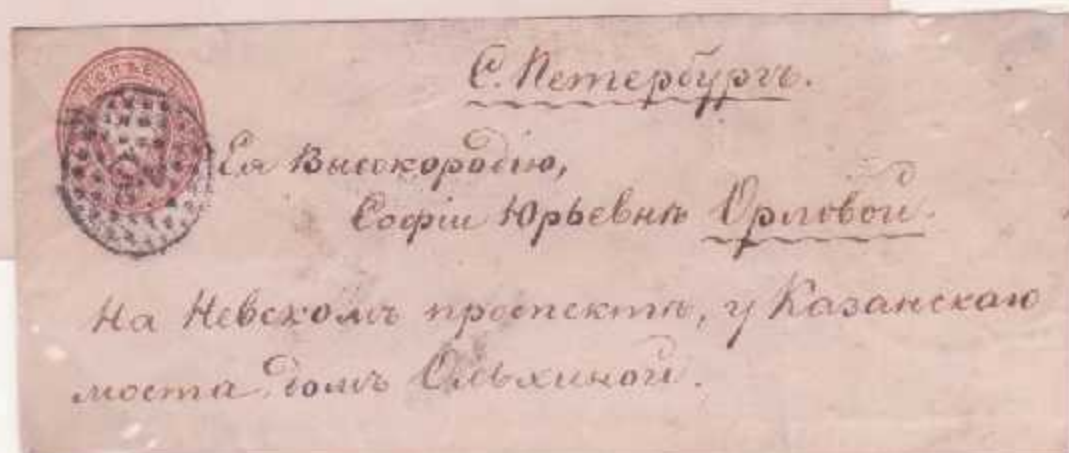 С. Петербургъ.
Ея Высокородію,
Софіи Юрьевнѣ Орловой.
На Невскомъ проспектѣ, у Казанскаго
моста домъ Ольхиной.